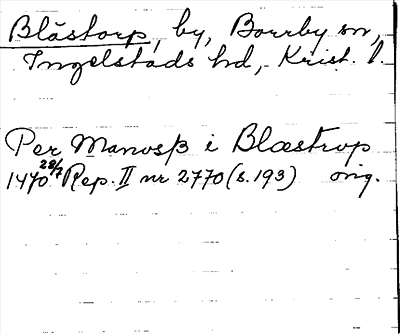 Blästorp, by, Borrby sn,
Ingelstads hd, Krist. l.
Per Manosß i Blæstrop
1470 28/7 Rep. II nr 2770 (s. 193) orig.